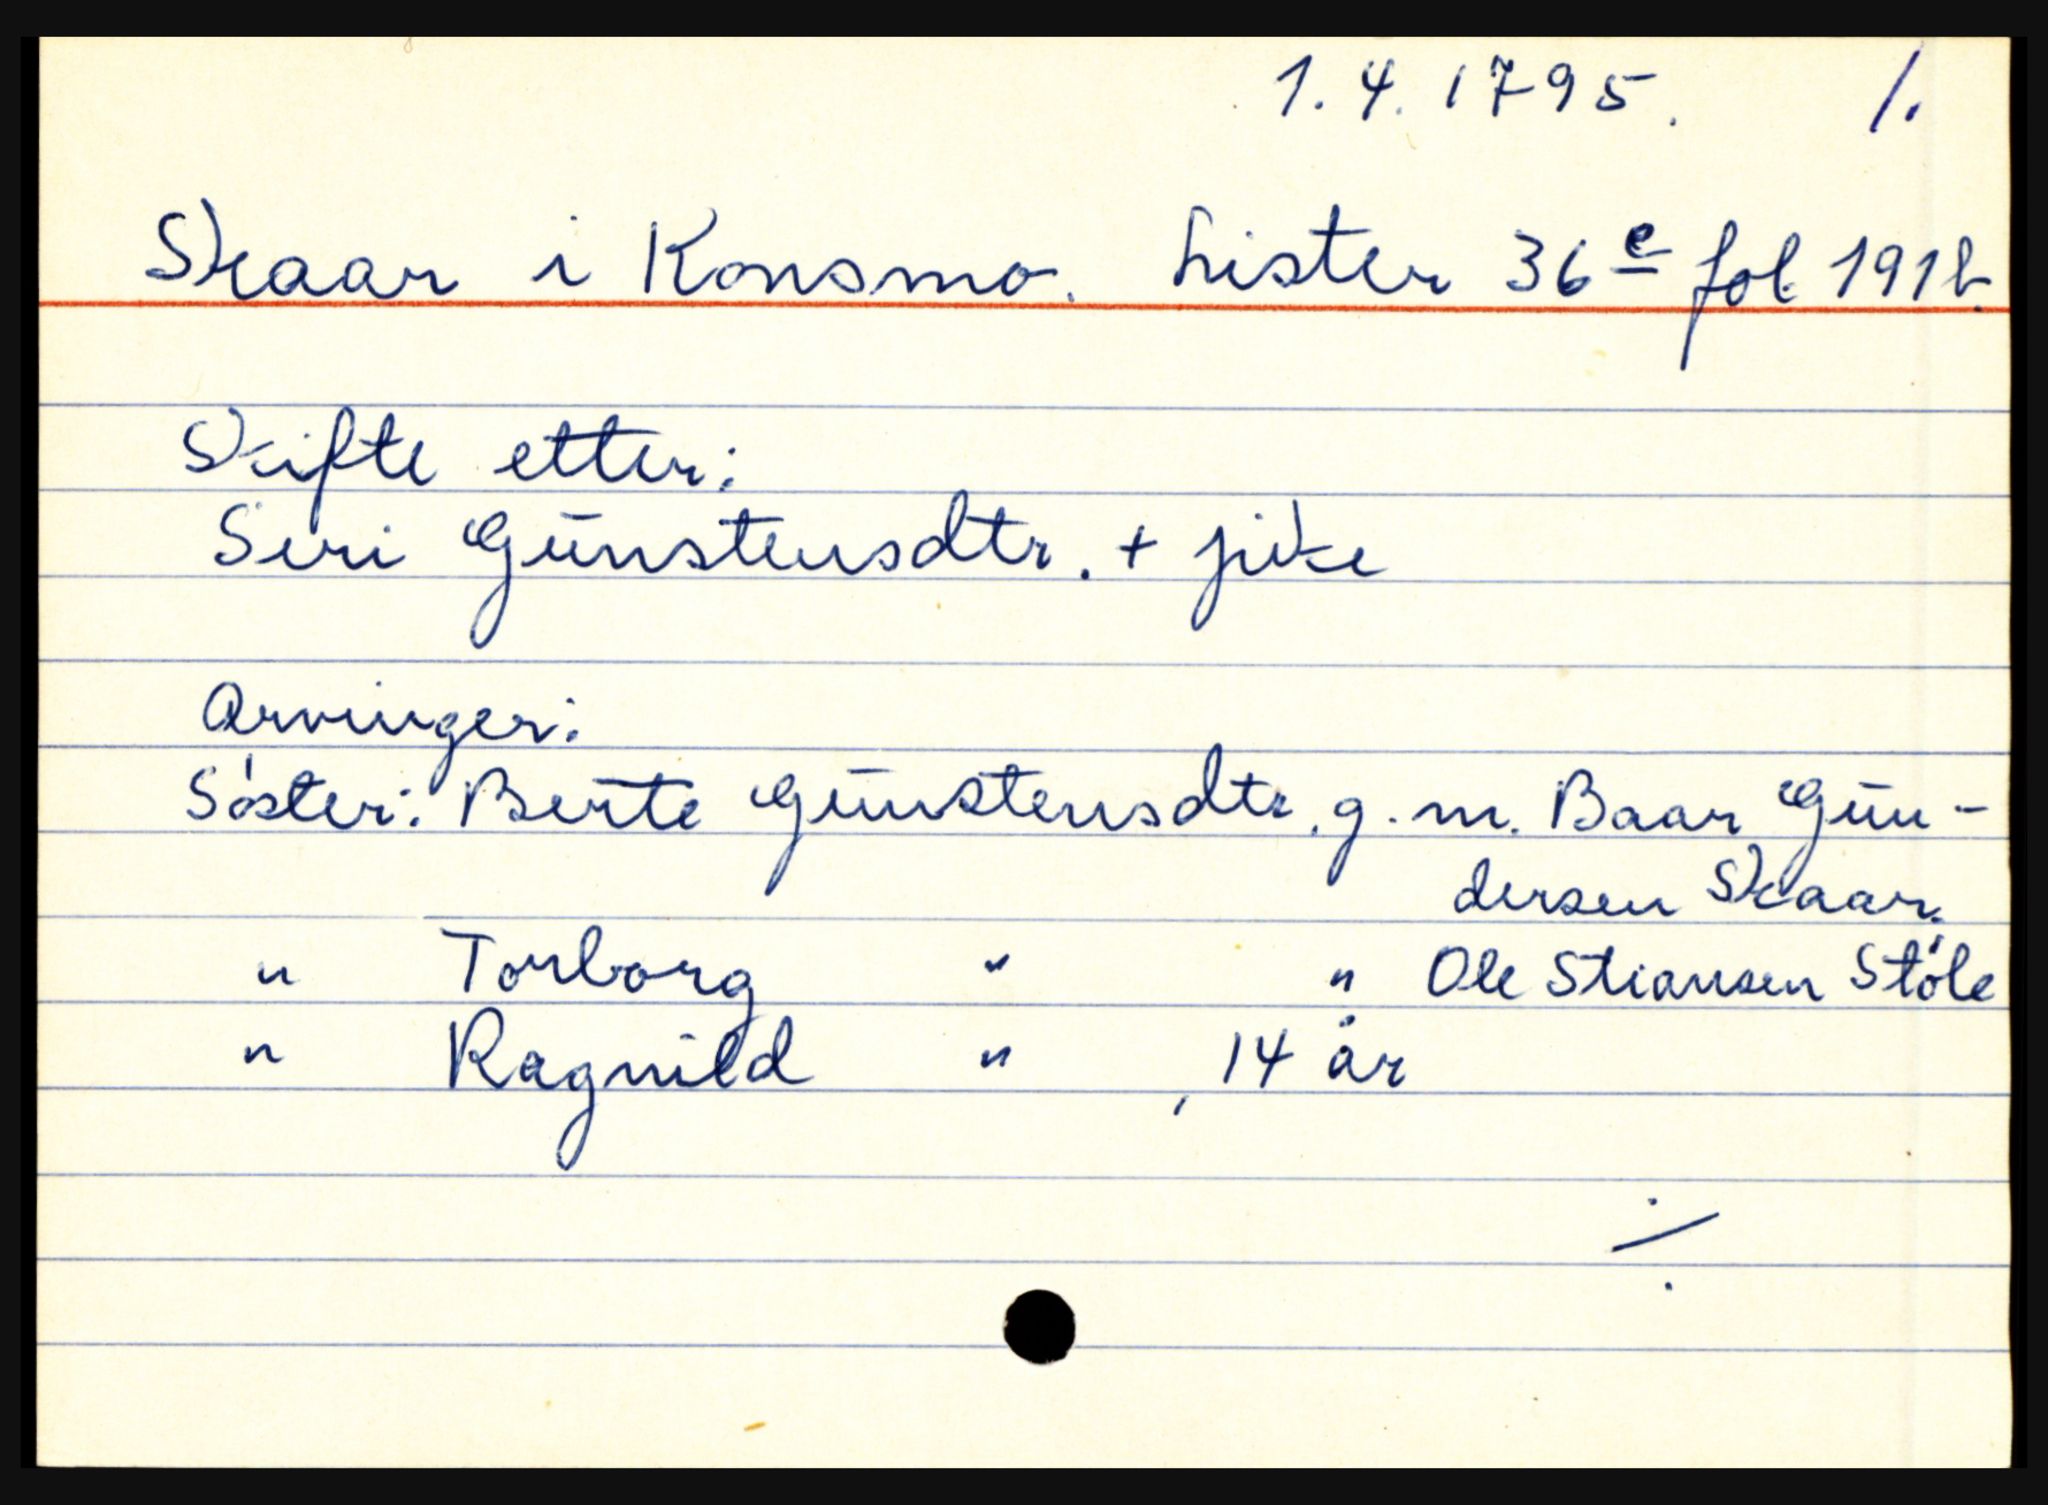 1.4.1795. /.
Skaar i Konsmo. Lister 36e fol. 191b.
Skifte etter:
Seri Gunstensdtr. + pike
Arvinger:
Söster: Berte Gunstensdtr. g.m. Baar Gun-
dersen Skaar.
" Torborg " " Ole Stiansen Støle
" Ragnild " , 14 år